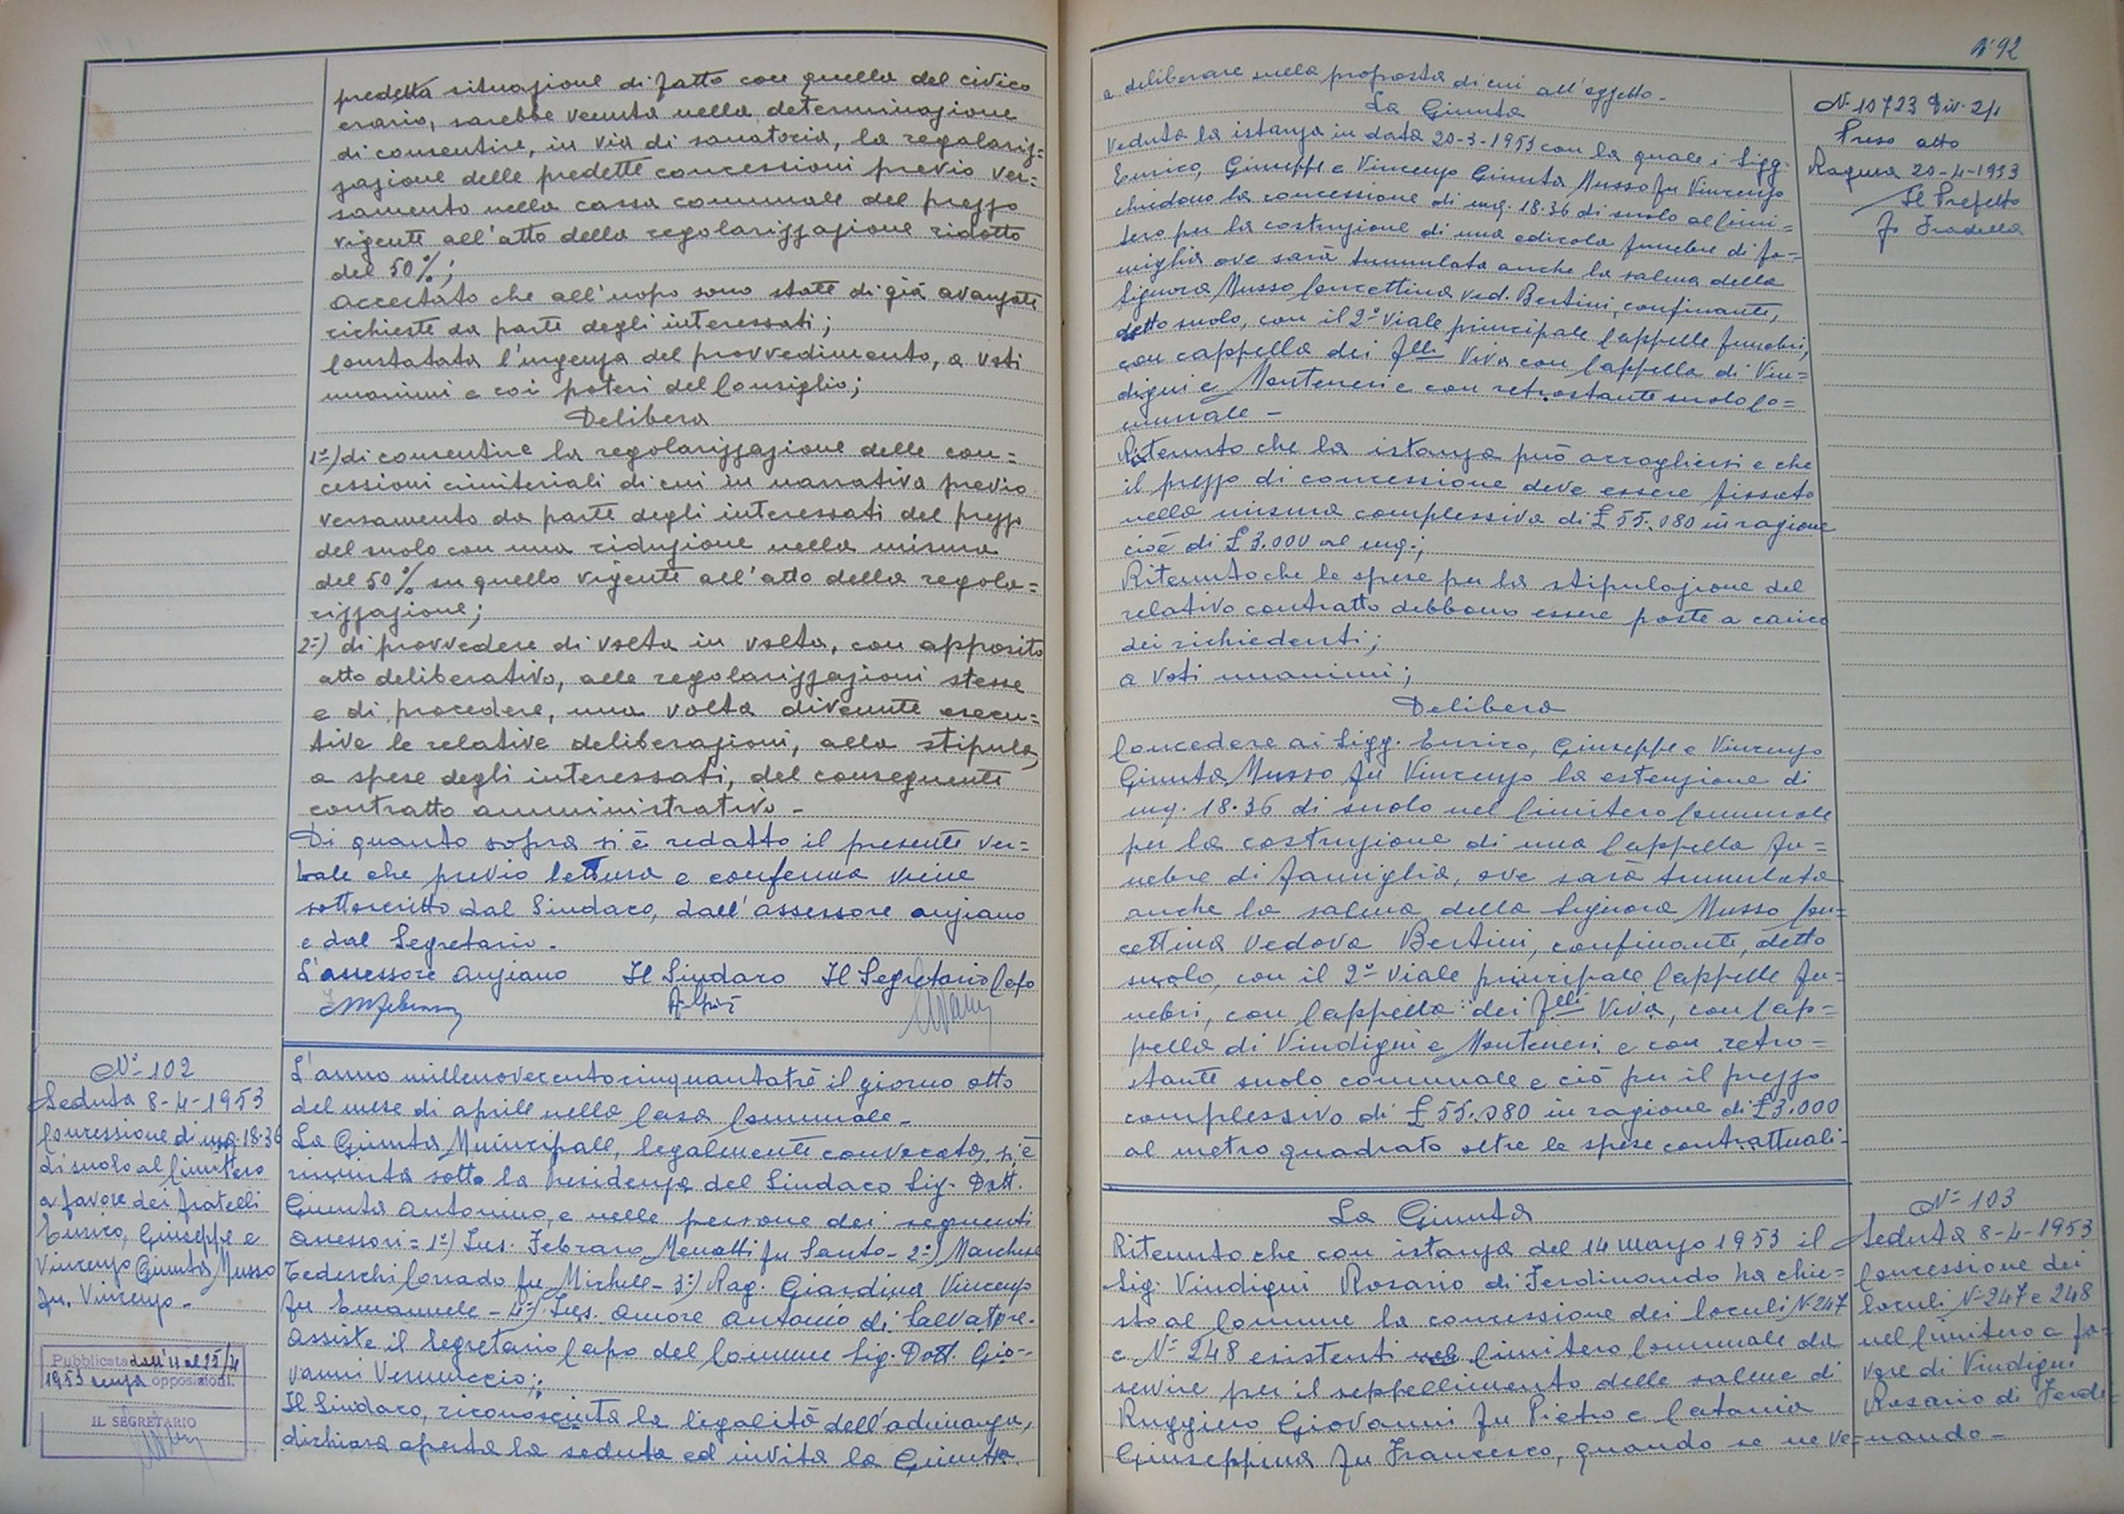 predetta situazione di fatto con quella del civico
erario, sarebbe venuta nella determinazione
di consentire, in via di sanatoria, la regolariz=
zazione delle predette concessioni previo ver=
samento nella cassa comunale del prezzo
vigente all'atto della regolarizzazione ridotto
del 50%;
Accertato che all'uopo sono state di già avanzate
richieste da parte degli interessati;
Constatata l'urgenza del provvedimento, a voti
unanimi e coi poteri del Consiglio;
Delibera
1°) di consentire la regolarizzazione delle con=
cessioni cimiteriali di cui in narrativa previo
versamento da parte degli interessati del prezzo
del suolo con una riduzione nella misura
del 50% su quello vigente all'atto della regola=
rizzazione;
2°) di provvedere di volta in volta, con apposito
atto deliberativo, alle regolarizzazioni stesse
e di procedere, una volta divenute esecu=
tive le relative deliberazioni, alla stipula,
a spese degli interessati, del conseguente
contratto amministrativo -
Di quanto sopra si è redatto il presente ver=
bale che previo lettura e conferma viene
sottoscritto dal Sindaco, dall'assessore anziano
e dal Segretario -
L'assessore anziano Il Sindaco Il Segretario Capo
N° 102
Seduta 8-4-1953
Concessione di mq. 18.36
di suolo al Cimitero
a favore dei fratelli
Enrico, Giuseppe e
Vincenzo Giunta Musso
fu Vincenzo -
Pubblicata dall'11 al 25/4
1953 senza opposizioni.
IL SEGRETARIO
L'anno millenovecentocinquantatrè il giorno otto
del mese di aprile nella Casa Comunale -
La Giunta Municipale, legalmente convocata, si è
riunita sotto la Presidenza del Sindaco Sig. Dott.
Giunta Antonino, e nelle persone dei seguenti
assessori = 1°) Ins. Febraro Menotti fu Santo - 2°) Marchese
Tedeschi Corrado fu Michele - 3°) Rag. Giardina Vincenzo
fu Emanuele - 4°) Ins. Amore Antonio di Salvatore -
Assiste il Segretario Capo del Comune Sig. Dott. Gio-
vanni Vernuccio;
Il Sindaco, riconosciuta la legalità dell'adunanza,
dichiara aperta la seduta ed invita la Giunta
N° 92
a deliberare sulla proposta di cui all'oggetto -
La Giunta
Veduta la istanza in data 20-3-1953 con la quale i Sigg.
Enrico, Giuseppe e Vincenzo Giunta Musso fu Vincenzo
chiedono la concessione di mq. 18.36 di suolo al Cimi=
tero per la costruzione di una edicola funebre di fa=
miglia ove sarà tumulata anche la salma della
Signora Musso Concettina ved. Bertini, confinante,
detto suolo, con il 2° viale principale Cappelle funebri,
con cappella dei F.lli Viva con Cappella di Vin=
digni e Monteneri e con retrostante suolo co=
munale -
Ritenuto che la istanza può accogliersi e che
il prezzo di concessione deve essere fissato
nella misura complessiva di £ 55.080 in ragione
cioè di £ 3.000 al mq.;
Ritenuto che le spese per la stipulazione del
relativo contratto debbono essere poste a carico
dei richiedenti;
a voti unanimi;
Delibera
Concedere ai Sigg. Enrico, Giuseppe e Vincenzo
Giunta Musso fu Vincenzo la estenzione di
mq. 18.36 di suolo nel Cimitero Comunale
per la costruzione di una Cappella fu=
nebre di famiglia, ove sarà tumulata
anche la salma della Signora Musso Con=
cettina vedova Bertini, confinante, detto
suolo, con il 2° viale principale Cappelle fu=
nebri, con Cappella dei F.lli Viva, con Cap=
pella di Vindigni e Monteneri e con retro=
stante suolo comunale e ciò per il prezzo
complessivo di £ 55.080 in ragione di £ 3.000
al metro quadrato oltre le spese contrattuali -
N. 10723 Div. 2/1
Preso atto
Ragusa 20-4-1953
Il Prefetto
La Giunta
Ritenuto che con istanza del 14 Marzo 1953 il
Sig. Vindigni Rosario di Ferdinando ha chie=
sto al Comune la concessione dei loculi N° 247
e N° 248 esistenti nel Cimitero Comunale da
servire per il seppellimento delle salme di
Ruggiero Giovanni fu Pietro e Catania
Giuseppina fu Francesco, quando se ne ve=
N° 103
Seduta 8-4-1953
Concessione dei
loculi N° 247 e 248
nel Cimitero a fa=
vore di Vindigni
Rosario di Ferdi=
nando -